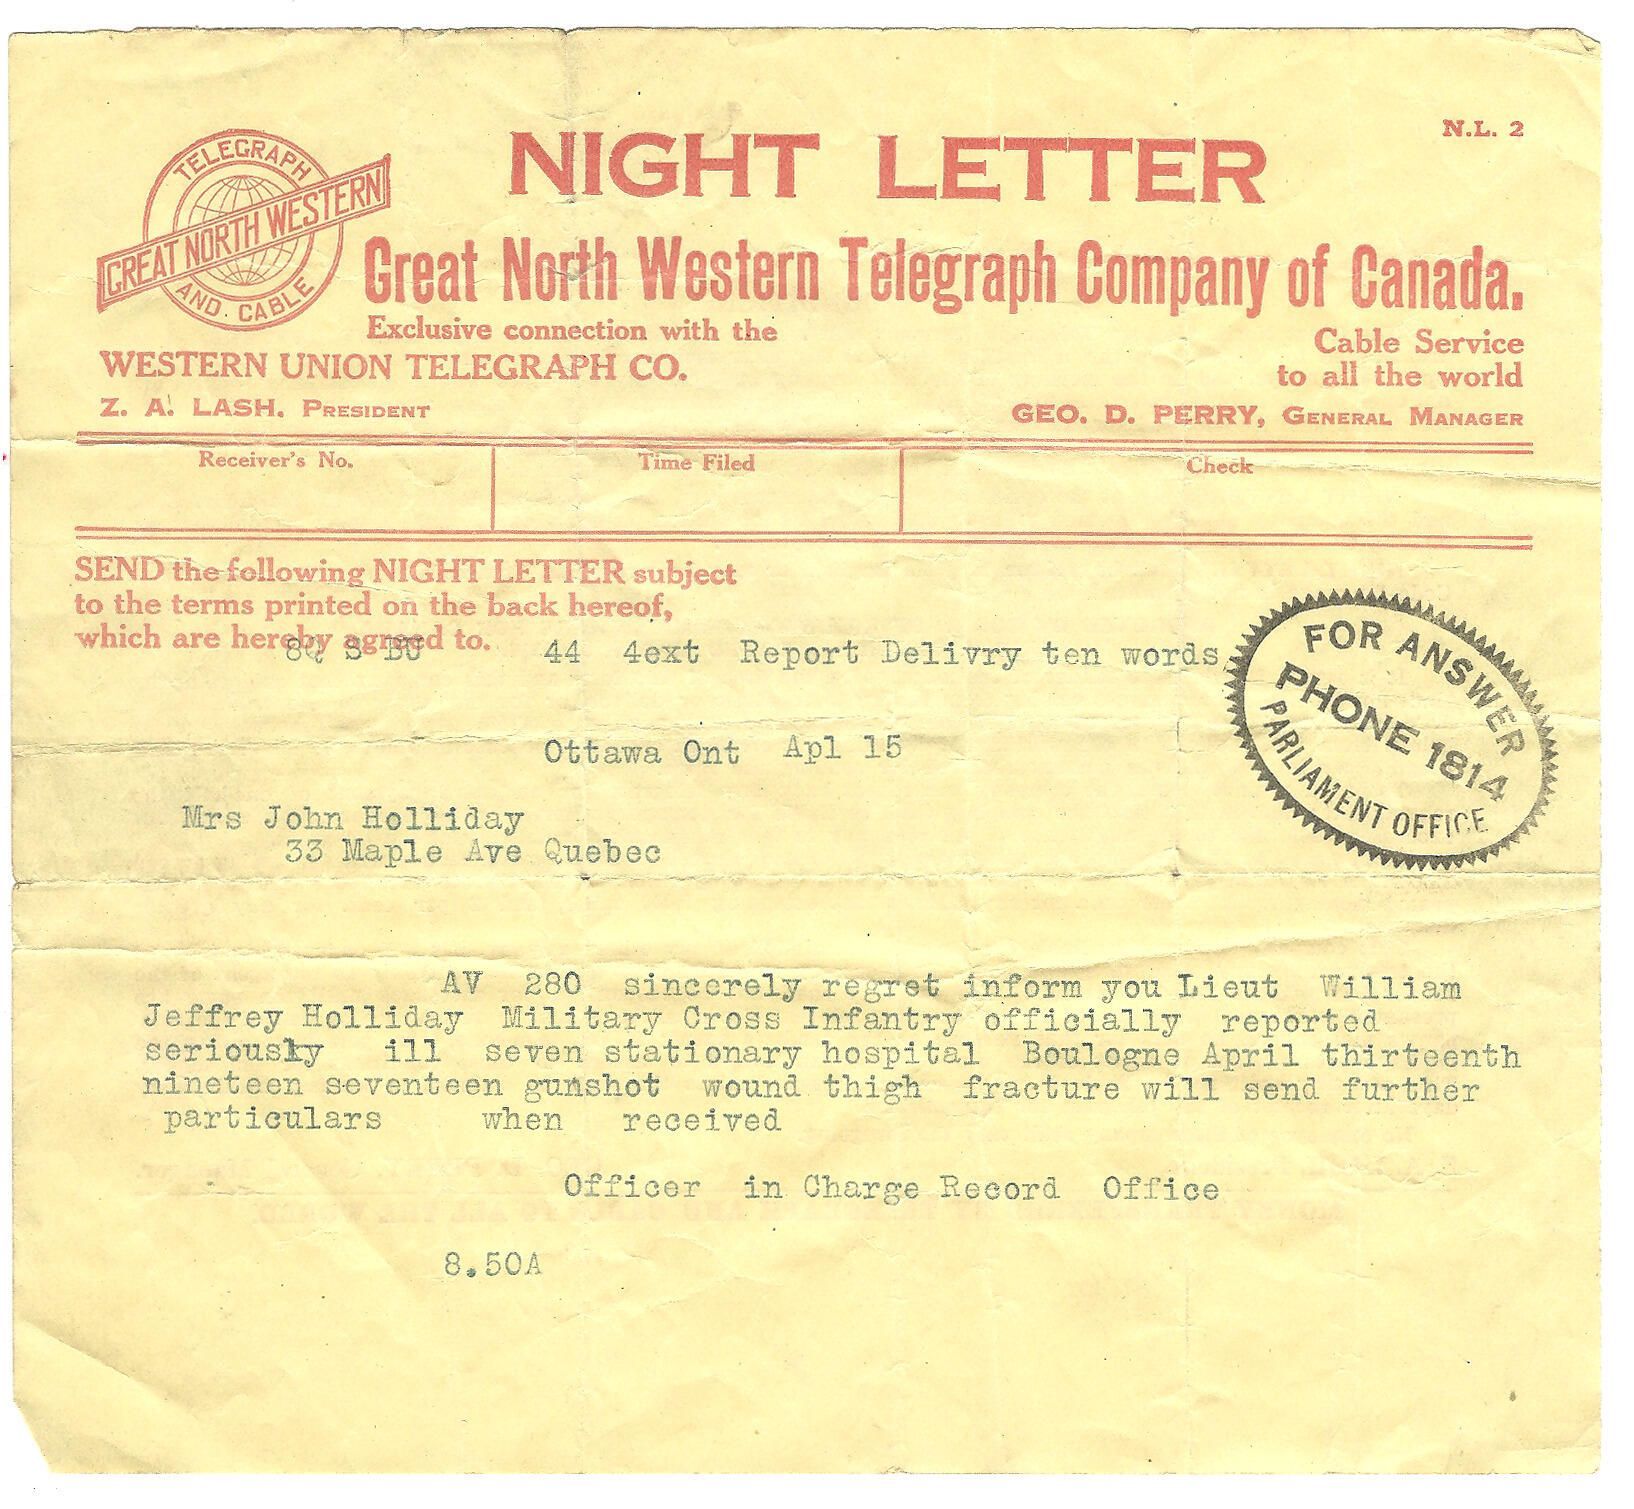 N.L. 2
NIGHT LETTER
TELEGRAPH
GREAT NORTH WESTERN
AND. CABLE
Great North Western Telegraph Company of Canada.
Exclusive connection with the
WESTERN UNION TELEGRAPH CO.
Cable Service
to all the world
Z. A. LASH, PRESIDENT
GEO. D. PERRY, GENERAL MANAGER
Receiver's No.
Time Filed
Check
SEND the following NIGHT LETTER subject
to the terms printed on the back hereof,
which are hereby agreed to.
8Q S BU 44 4ext Report Delivry ten words
FOR ANSWER
PHONE 1814
PARLIAMENT OFFICE
Ottawa Ont Apl 15
Mrs John Holliday
33 Maple Ave Quebec
AV 280 sincerely regret inform you Lieut William
Jeffrey Holliday Military Cross Infantry officially reported
seriously ill seven stationary hospital Boulogne April thirteenth
nineteen seventeen gunshot wound thigh fracture will send further
particulars when received
Officer in Charge Record Office
8.50A